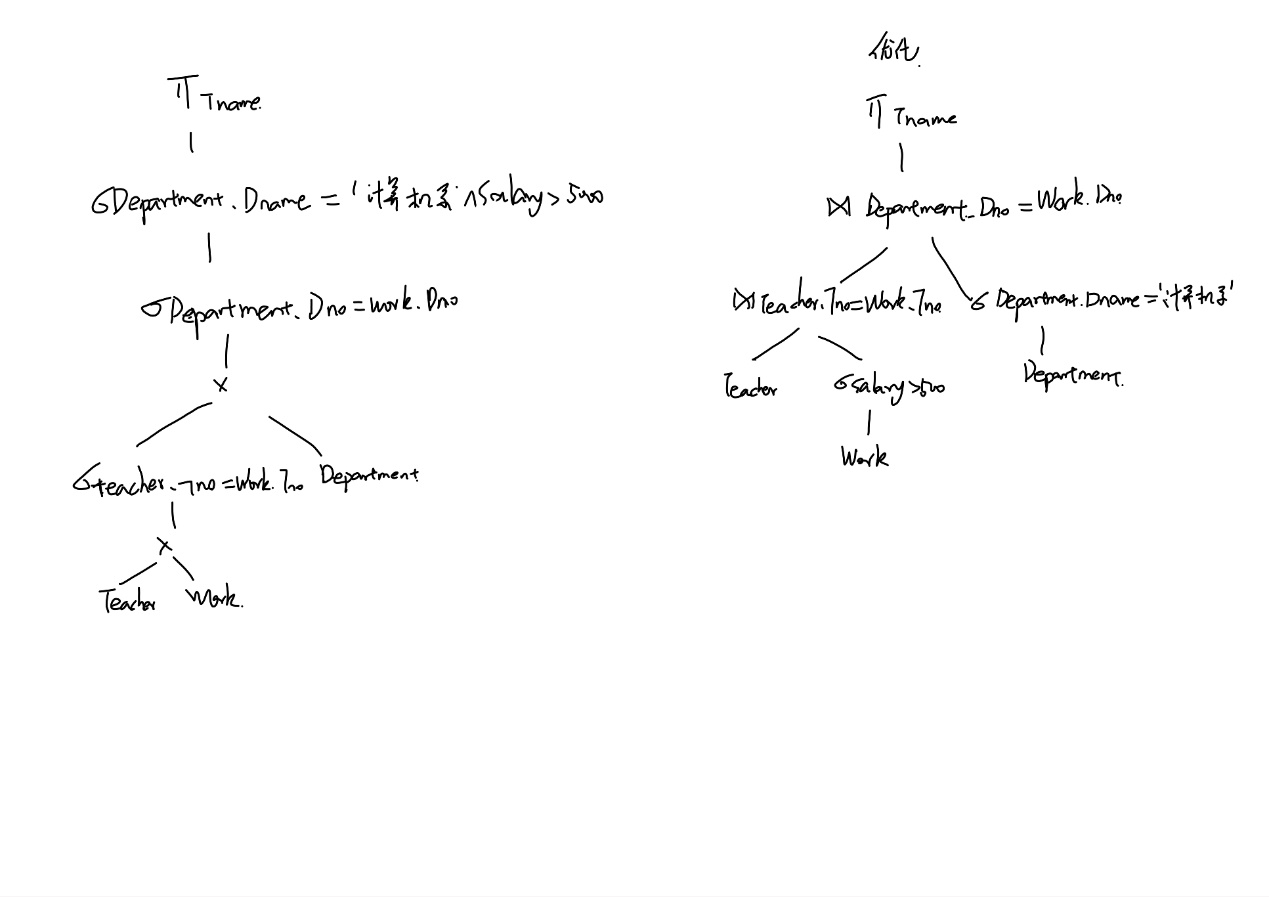 π Tname.
σDepartment.Dname = '计算机系'∧Salary>5000
σDepartment.Dno=work.Dno
×
σteacher.Tno=Work.Tno Department
×
Teacher Work.
优化.
π Tname
⋈ Department.Dno=Work.Dno
⋈Teacher.Tno=Work.Tno σ Department.Dname='计算机系'
Teacher σsalary>5000 Department.
Work